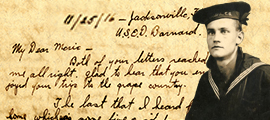 11/25/16 – Jacksonville,
U.S.C.D. Barnard.
My Dear Marie –
Both of your letters reached
me all right. Glad to hear that you en
joyed your trips to the grape country.
The last that I heard f